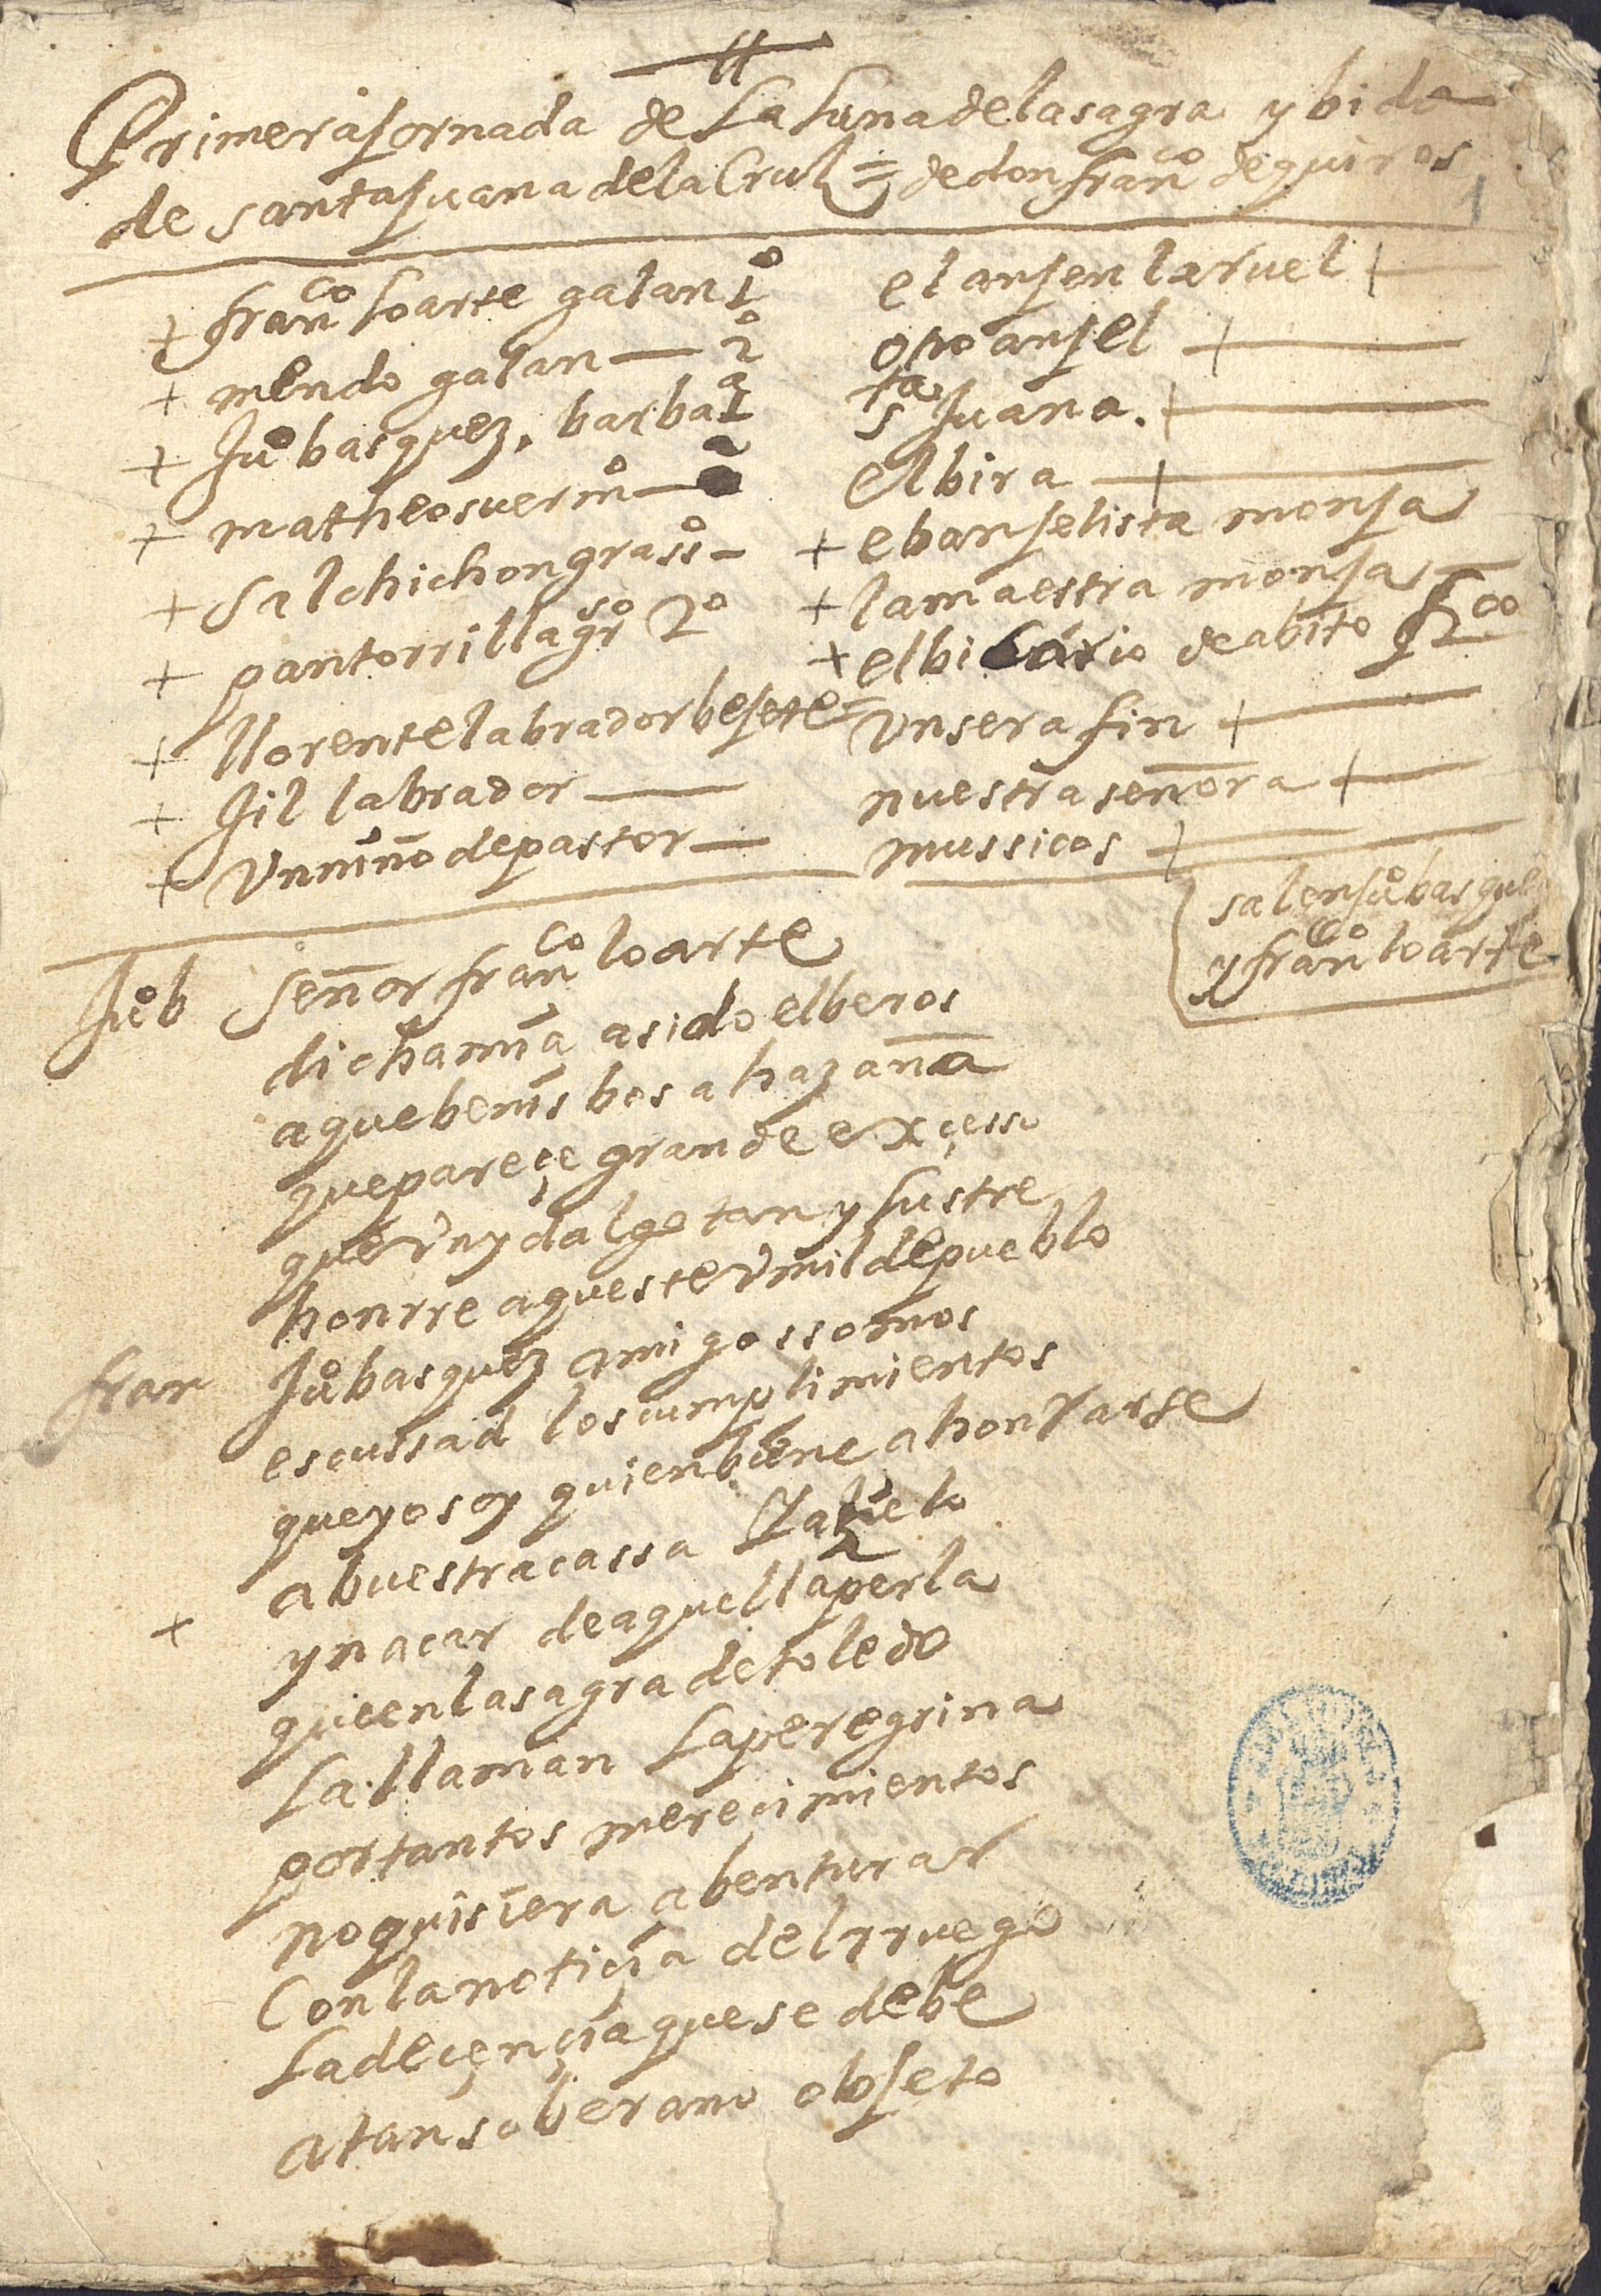 Primera jornada de La Luna de la sagra y bida
de santa Juana de la Cruz = de don franco de quiros
1
+ franco Loarte galan 1o
+ mendo galan — 2o
+ Juo basquez. barba 1a
+ matheo suermo —
+ salchichon grasso —
+ pantorrilla grso 2o
+ llorente labrador bejete =
+ Jil labrador —
+ Vn niño de pastor —
el anjen laruel +
otro anjel +
sta Juana. +
elbira +
+ ebanjelista monja
+ la maestra monja
+ el bicario de abito fco
Vn serafin +
nuestra señora +
mussicos +
salen juo basquez
y franco loarte
Juo b señor franco loarte
dicha mia a sido el beros
a que benis bos a hazaña
que pareçe grande exçesso
que Vn ydalgo tan ylustre
honrre aqueste Vmilde pueblo
fran Juo basquez amigos somos
escussad los cumplimientos
que yo soy quien biene a honrarse
a buestra cassa
+ y nacar de aquella perla
qu en la sagra de toledo
La llaman La peregrina
por tantos merecimientos
no quisiera abenturar
Con la notiçia del rruego
La deçençia que se debe
a tan soberano objeto